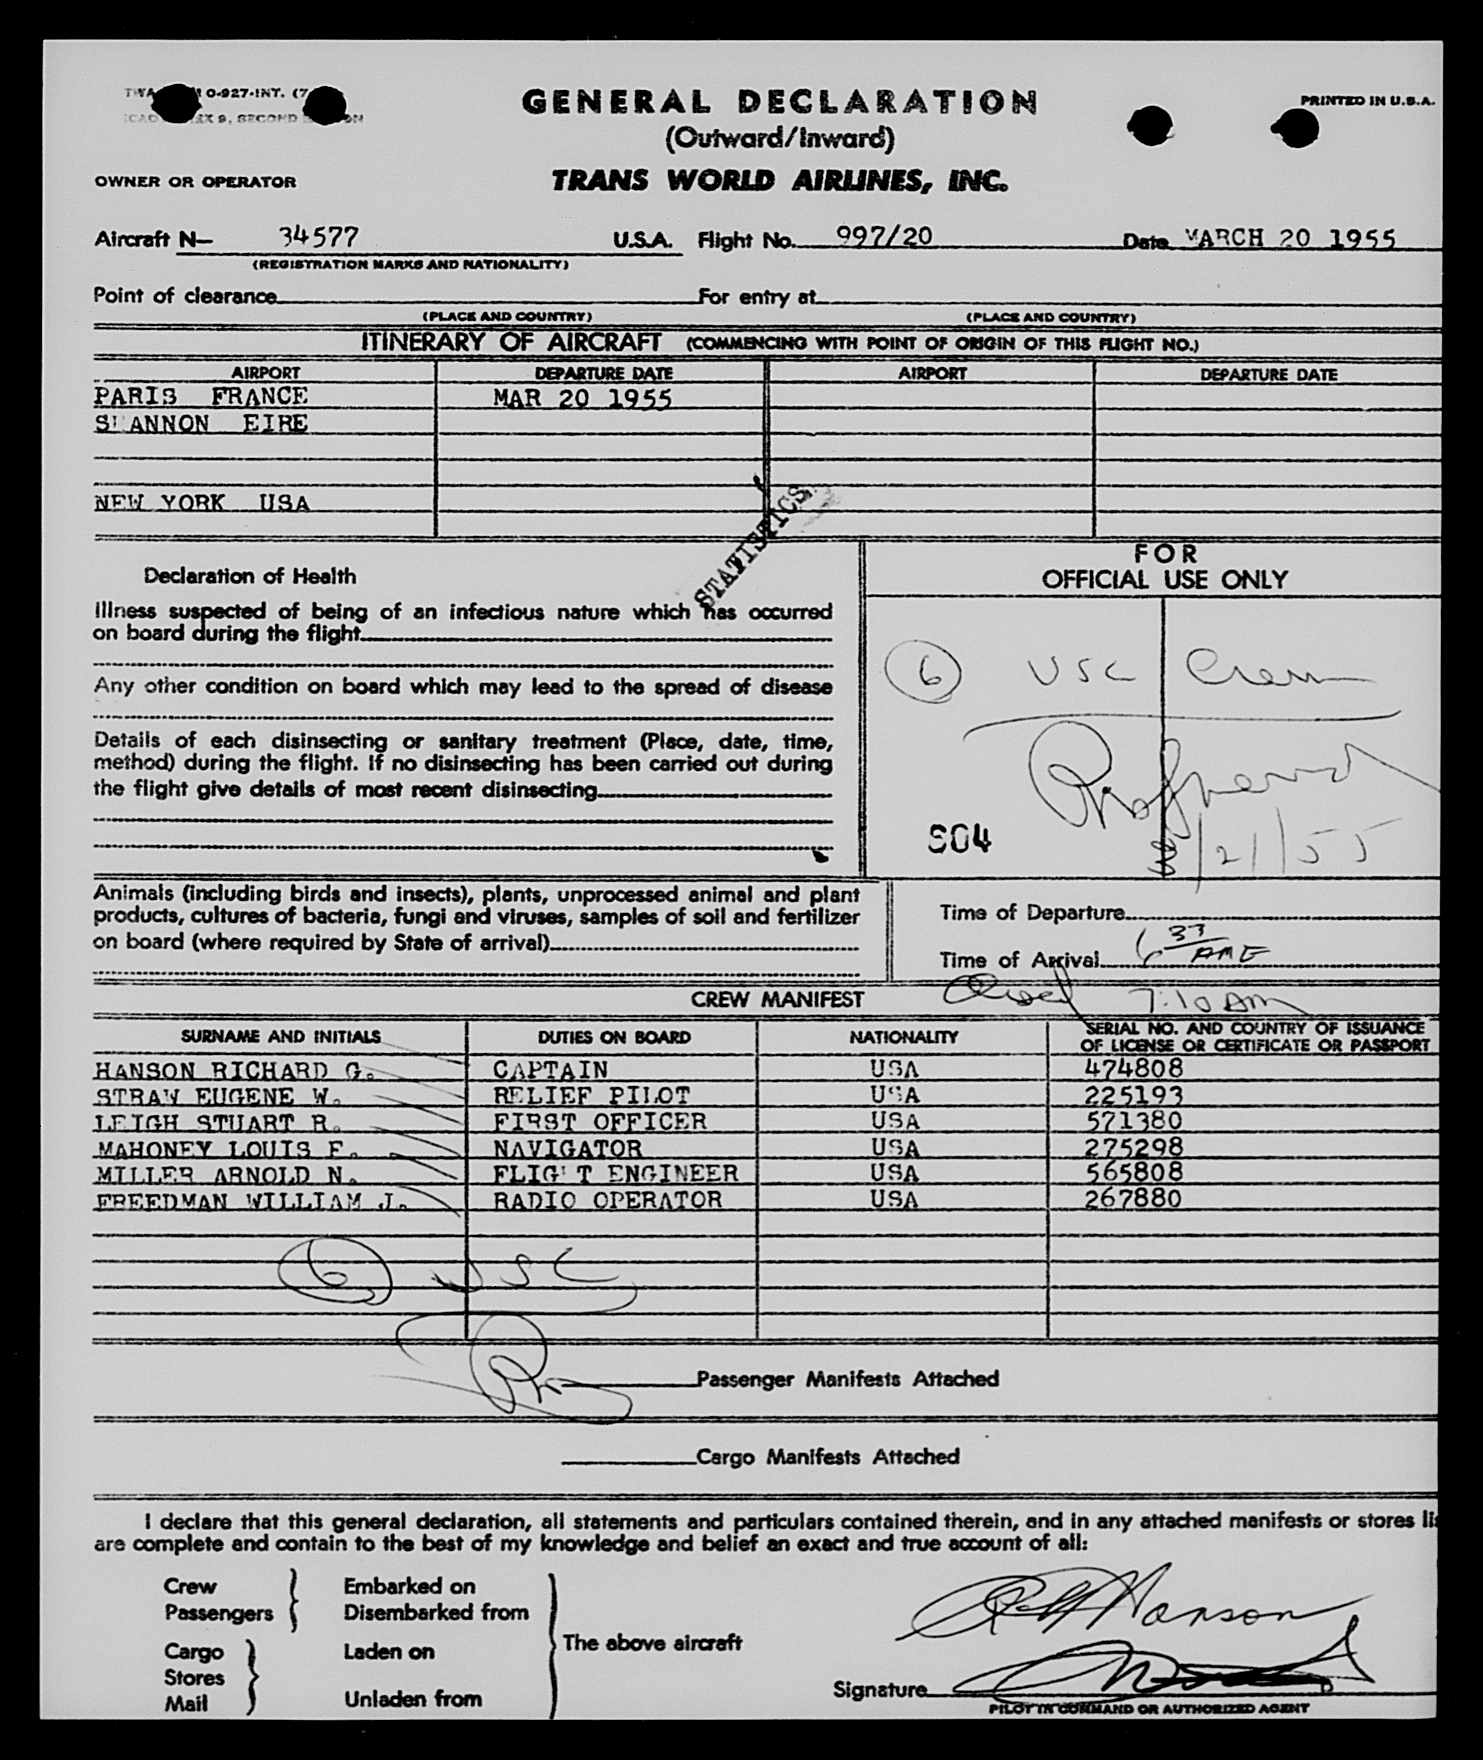 O-927-INT. (7
PRINTED IN U.S.A.
9, SECOND
GENERAL DECLARATION
(Outward/Inward)
OWNER OR OPERATOR
TRANS WORLD AIRLINES, INC.
Aircraft N— 34577 U.S.A. Flight No. 997/20 Date MARCH 20 1955
(REGISTRATION MARKS AND NATIONALITY)
Point of clearance For entry at
(PLACE AND COUNTRY) (PLACE AND COUNTRY)
ITINERARY OF AIRCRAFT (COMMENCING WITH POINT OF ORIGIN OF THIS FLIGHT NO.)
AIRPORT DEPARTURE DATE AIRPORT DEPARTURE DATE
PARIS FRANCE MAR 20 1955
SHANNON EIRE
NEW YORK USA
STATISTICS
FOR
OFFICIAL USE ONLY
Declaration of Health
Illness suspected of being of an infectious nature which has occurred
on board during the flight
Any other condition on board which may lead to the spread of disease
Details of each disinsecting or sanitary treatment (Place, date, time,
method) during the flight. If no disinsecting has been carried out during
the flight give details of most recent disinsecting
6 USC Crew
21/55
S04
Animals (including birds and insects), plants, unprocessed animal and plant
products, cultures of bacteria, fungi and viruses, samples of soil and fertilizer
on board (where required by State of arrival)
Time of Departure
Time of Arrival 6 33
7:10 AM
CREW MANIFEST
SURNAME AND INITIALS DUTIES ON BOARD NATIONALITY SERIAL NO. AND COUNTRY OF ISSUANCE
OF LICENSE OR CERTIFICATE OR PASSPORT
HANSON RICHARD G. CAPTAIN USA 474808
STRAW EUGENE W. RELIEF PILOT USA 225193
LEIGH STUART R. FIRST OFFICER USA 571380
MAHONEY LOUIS F. NAVIGATOR USA 275298
MILLER ARNOLD N. FLIGHT ENGINEER USA 565808
FREEDMAN WILLIAM J. RADIO OPERATOR USA 267880
6 USC
Passenger Manifests Attached
Cargo Manifests Attached
I declare that this general declaration, all statements and particulars contained therein, and in any attached manifests or stores lis
are complete and contain to the best of my knowledge and belief an exact and true account of all:
Crew Embarked on
Passengers Disembarked from
The above aircraft
Cargo Laden on
Stores
Mail Unladen from
Hanson
Signature
PILOT IN COMMAND OR AUTHORIZED AGENT